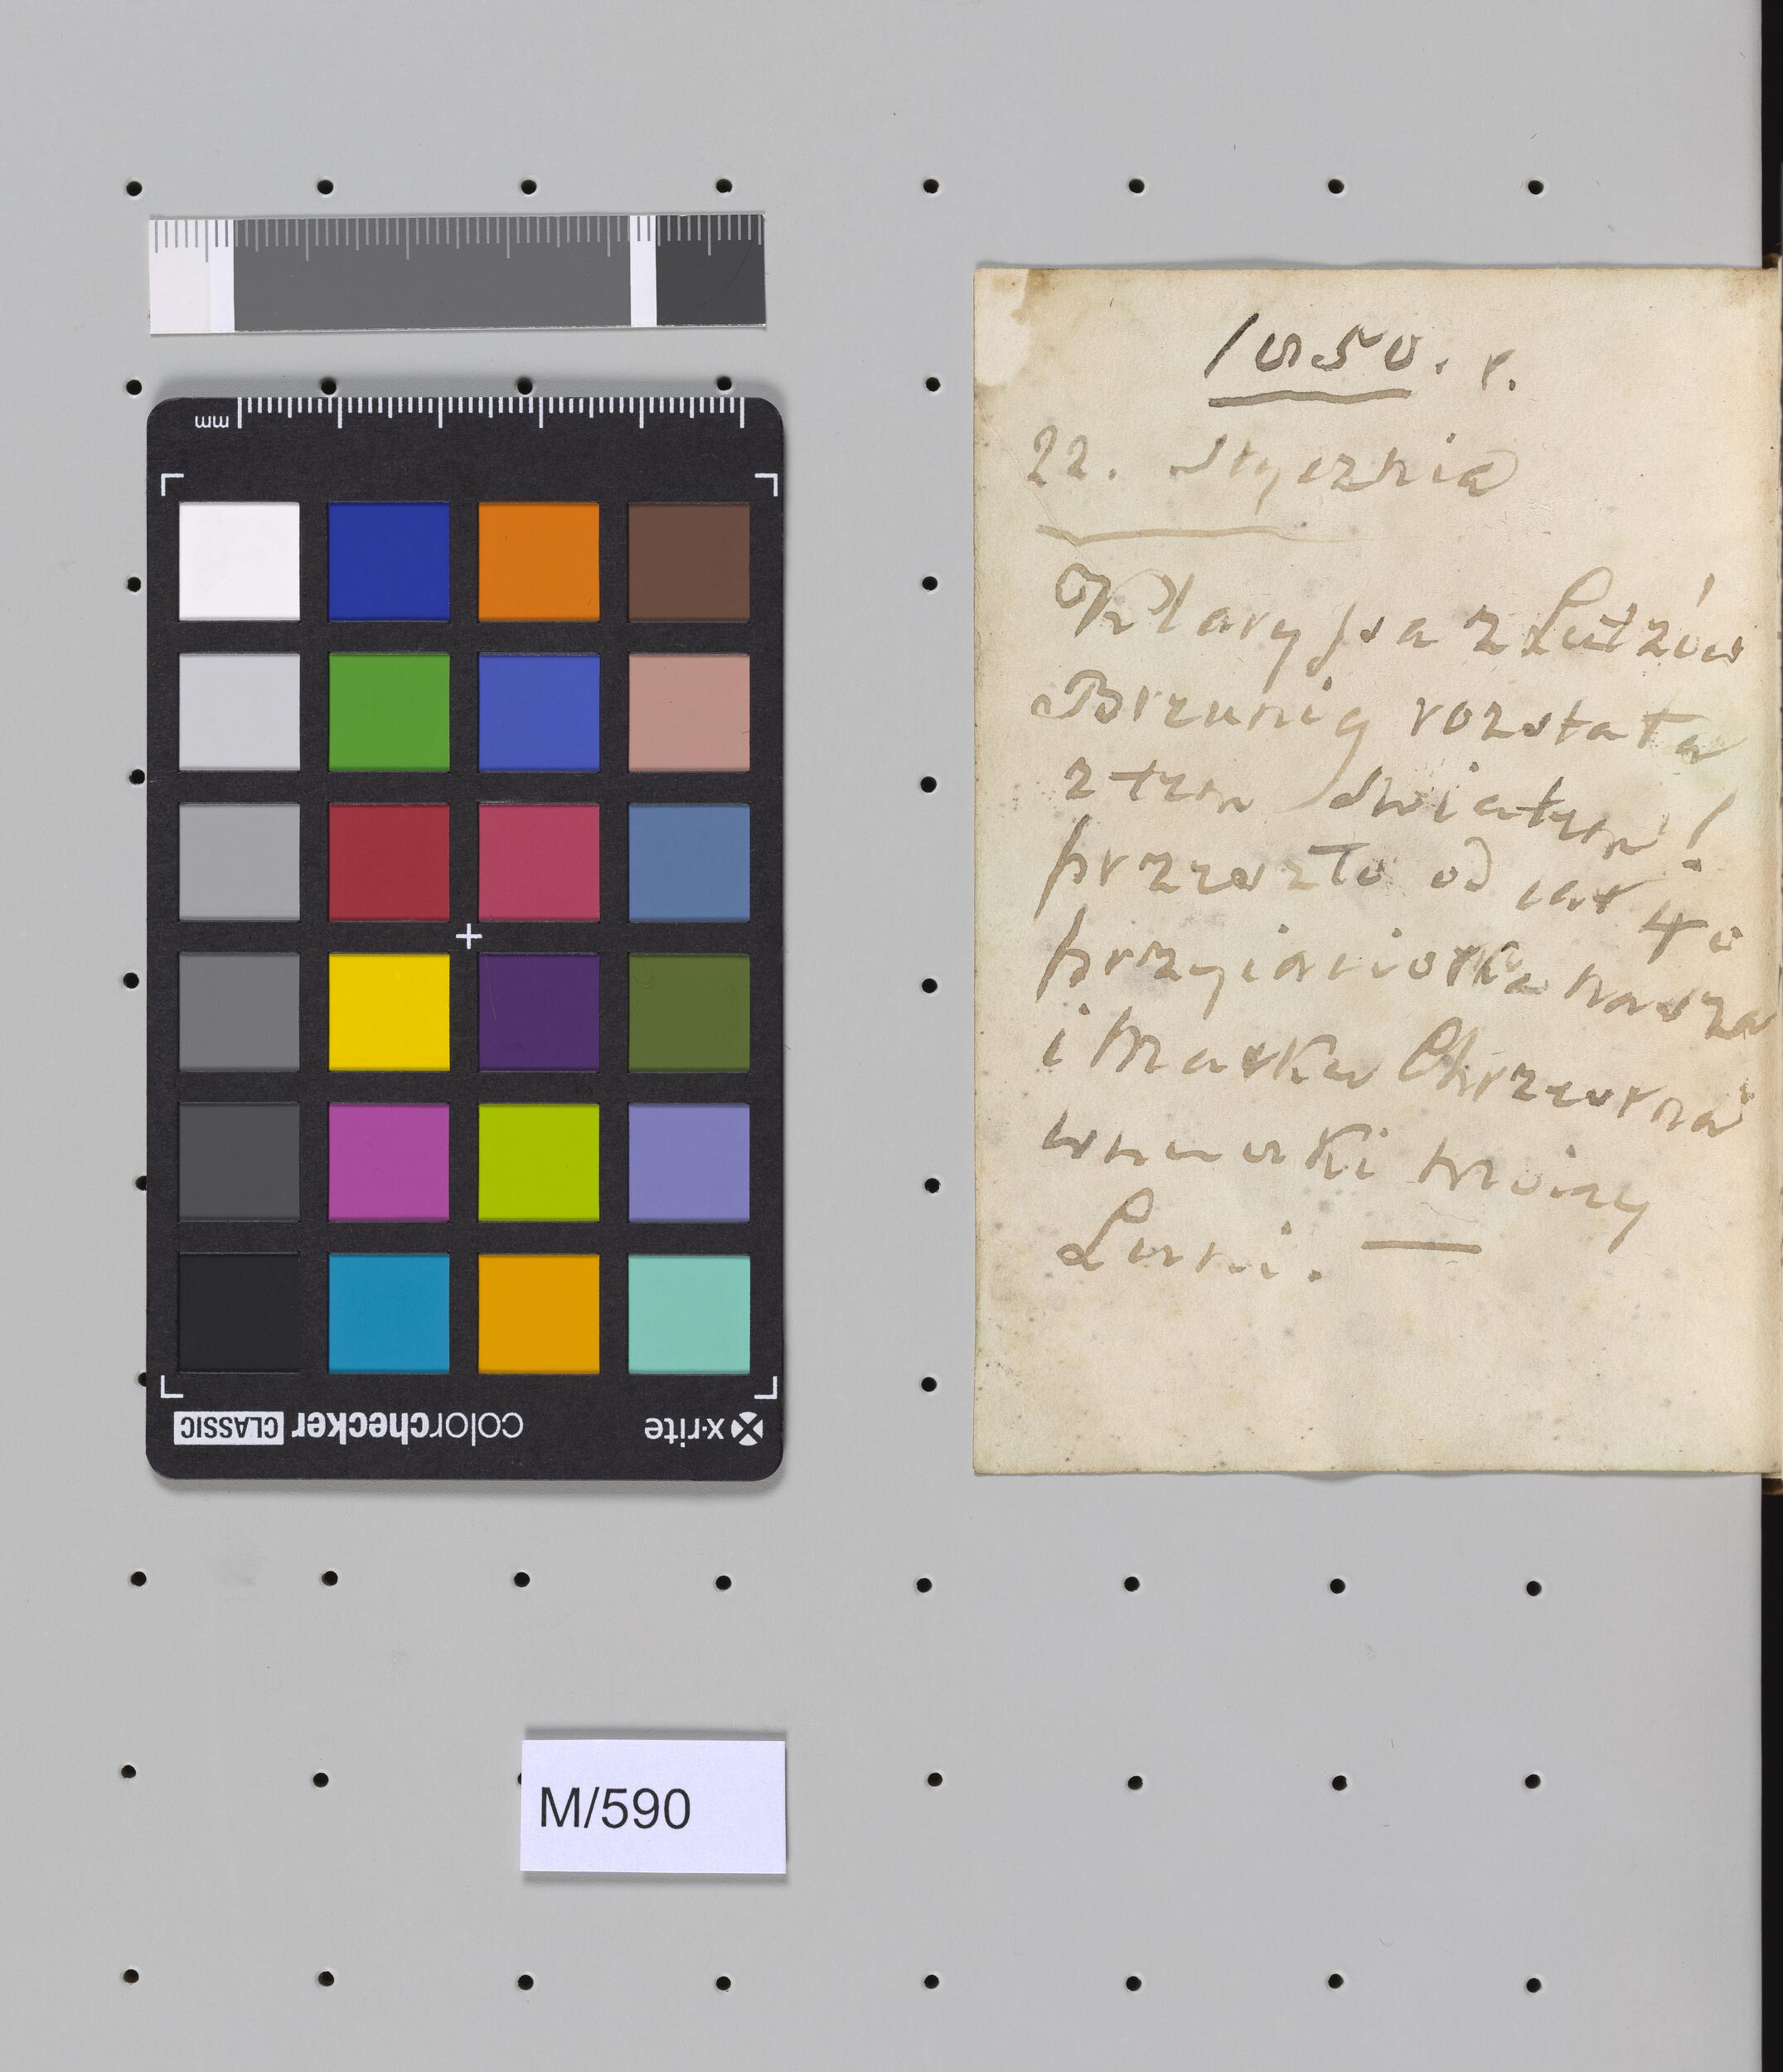 1850. r.
22. Stycznia
Klaryssa z Lutzów
Brzunig rozstała
z tym Swiatem!
przeszło od lat 40
przyiaciołka nasza
i Matka Chrzestna
wnuczki moiey
Luni. —
mm
x-rite colorchecker CLASSIC
M/590